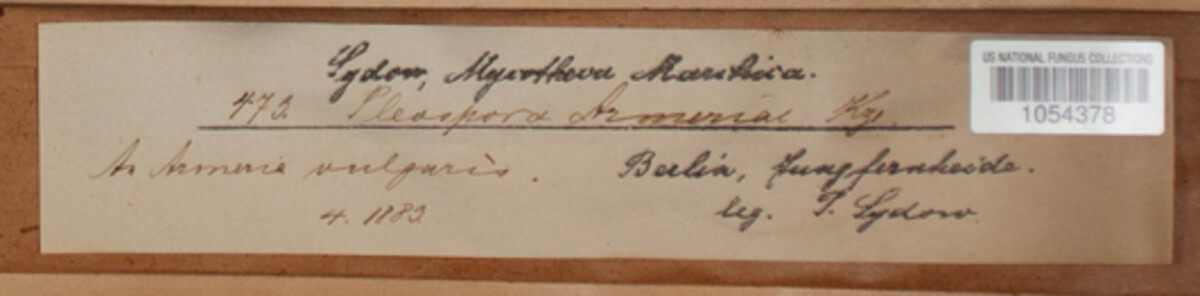 Sydow, Mycotheca Marchica.
US NATIONAL FUNGUS COLLECTIONS
1054378
473. Pleospora Armeriae
An Armeria vulgaris.
Berlin, Jungfernheide.
4. 1883
leg. P. Sydow